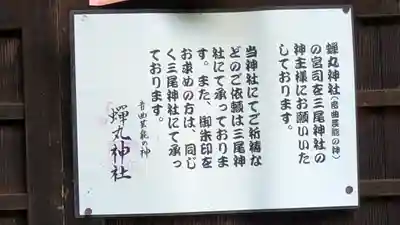 蟬丸神社(音曲芸能の神)
の宮司を三尾神社の
神主様にお願いいた
しております。
当神社にてご祈祷な
どのご依頼は三尾神
社にて承っておりま
す。また、御朱印を
お求めの方は、同じ
く三尾神社にて承っ
ております。
音曲芸能の神
蟬丸神社